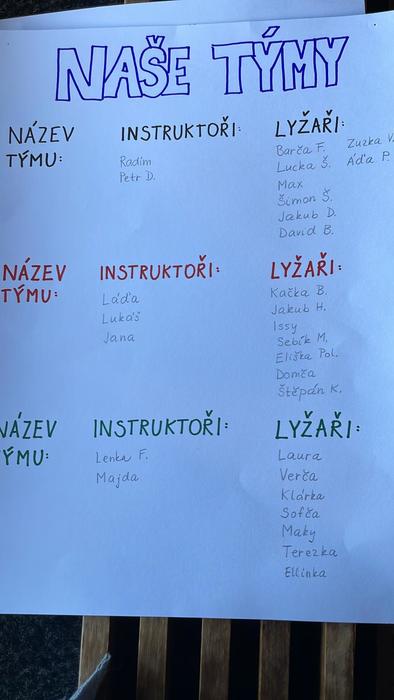 NAŠE TÝMY
NÁZEV
TÝMU:
INSTRUKTOŘI:
Radim
Petr D.
LYŽAŘI:
Barča F.
Lucka Š.
Max
Šimon Š.
Jakub D.
David B.
Zuzka V.
Áďa P.
NÁZEV
TÝMU:
INSTRUKTOŘI:
Láďa
Lukáš
Jana
LYŽAŘI:
Kačka B.
Jakub H.
Issy
Sebík M.
Eliška Pol.
Domča
Štěpán K.
NÁZEV
ÝMU:
INSTRUKTOŘI:
Lenka F.
Majda
LYŽAŘI:
Laura
Verča
Klárka
Sofča
Maky
Terezka
Ellinka